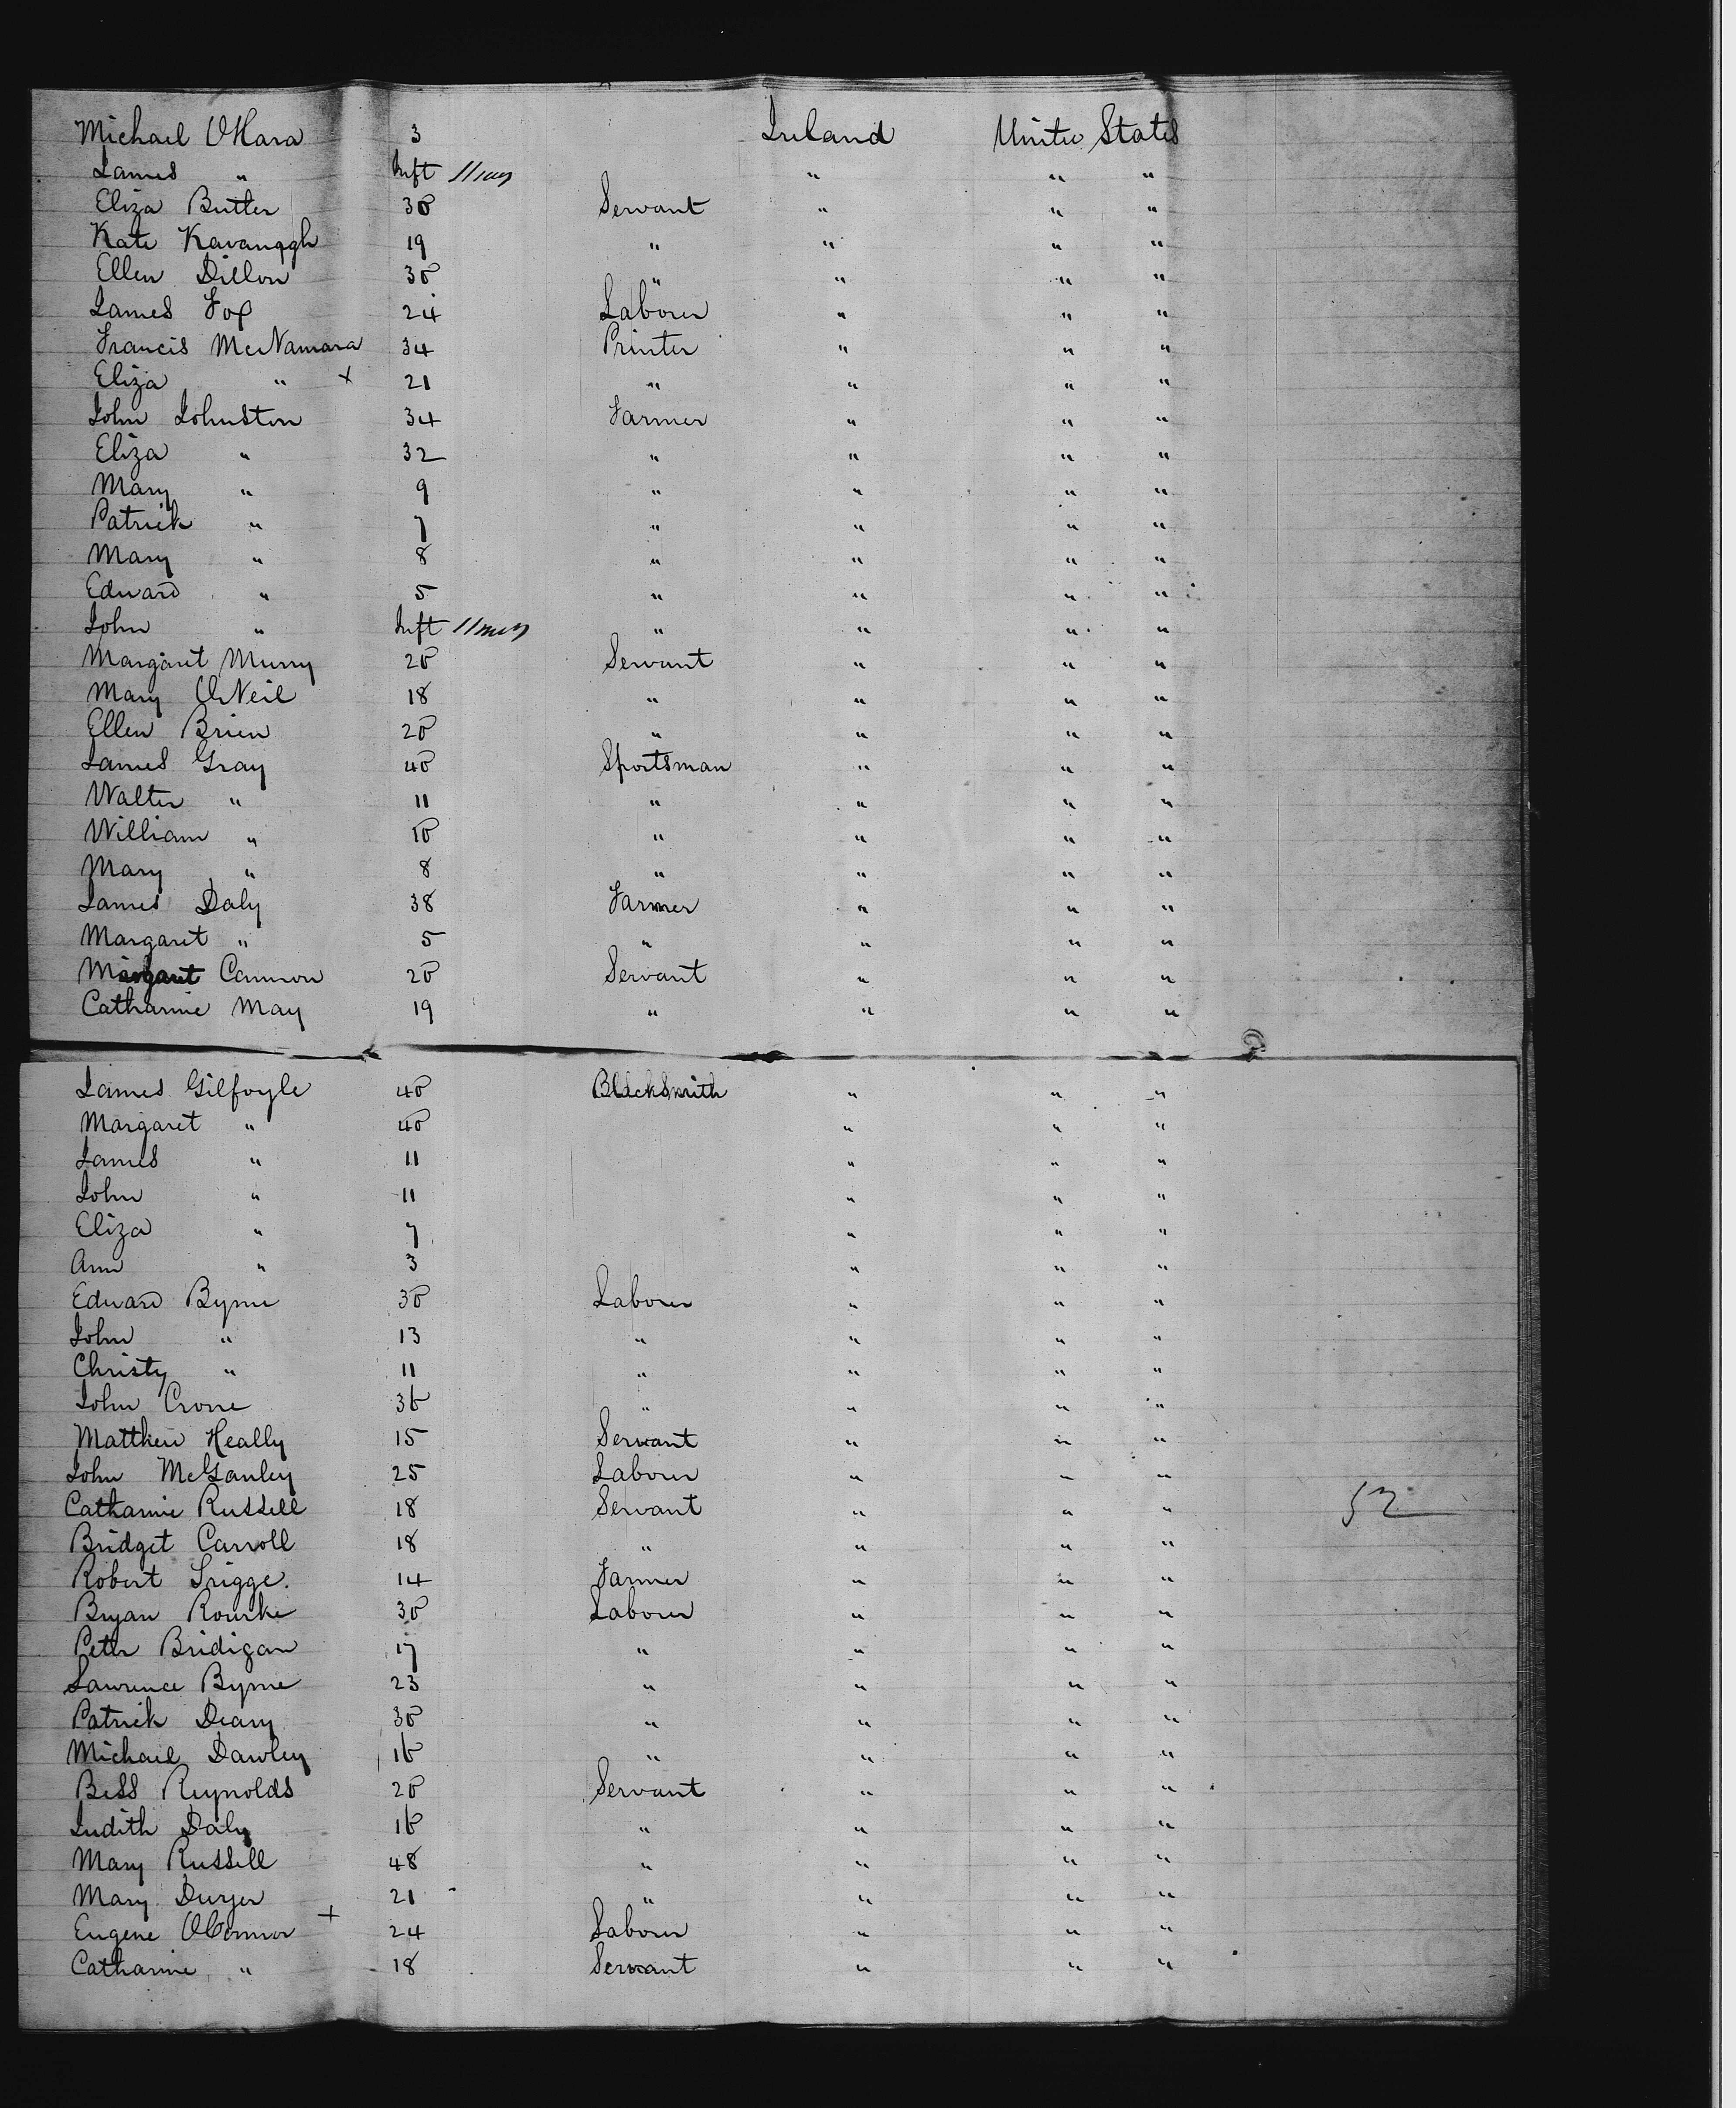 Michael OHara 3 Ireland United States
James " Inft 11 mos " " "
Eliza Butler 30 Servant " " "
Kate Kavanagh 19 " " " "
Ellen Dillon 30 " " " "
James Fox 24 Labourer " " "
Francis McNamara 34 Printer " " "
Eliza " x 21 " " " "
John Johnston 34 Farmer " " "
Eliza " 32 " " " "
Mary " 9 " " " "
Patrick " 7 " " " "
Mary " 8 " " " "
Edward " 5 " " " "
John " Inft 11 mos " " " "
Margaret Murry 20 Servant " " "
Mary ONeil 18 " " " "
Ellen Brien 20 " " " "
James Gray 40 Sportsman " " "
Walter " 11 " " " "
William " 10 " " " "
Mary " 8 " " " "
James Daly 38 Farmer " " "
Margaret " 5 " " " "
Margaret Cannon 20 Servant " " "
Catharine May 19 " " " "
James Gilfoyle 40 Blacksmith " " "
Margaret " 40 " " "
James " 11 " " "
John " 11 " " "
Eliza " 7 " " "
Ann " 3 " " "
Edward Byrne 30 Labourer " " "
John " 13 " " " "
Christy " 11 " " " "
John Crone 36 " " " "
Matthew Heally 15 Servant " " "
John McGanley 25 Labourer " " "
Catharine Russell 18 Servant " " "
Bridget Carroll 18 " " " "
Robert Trigge. 14 Farmer " " "
Bryan Rourke 30 Labourer " " "
Peter Bridigan 17 " " " "
Lawrence Byrne 23 " " " "
Patrick Deary 30 " " " "
Michael Dawley 16 " " " "
Bess Reynolds 20 Servant " " "
Judith Daly 16 " " " "
Mary Russell 48 " " " "
Mary Dwyer 21 " " " "
Eugene OConnor + 24 Labourer " " "
Catharine " 18 Servant " " "
52